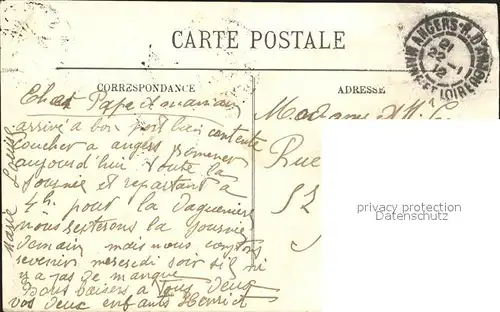 CARTE POSTALE
CORRESPONDANCE
ADRESSE
ANGERS-R. D'
MAINE-ET-LOIRE
Cher Papa et maman
arrivé a bon port bien contente
coucher a angers promener
aujourd'hui toute la
journée et repartant a
4h pour la Daguenière
nous resterons la journée
demain mais nous comptons
revenir mercredi soir si il ni
y a pas de manque
Bons baisers a Tous Deux
vos deux enfants Henri et
Marie Louise
Madame
Rue
52
privacy protection
Datenschutz